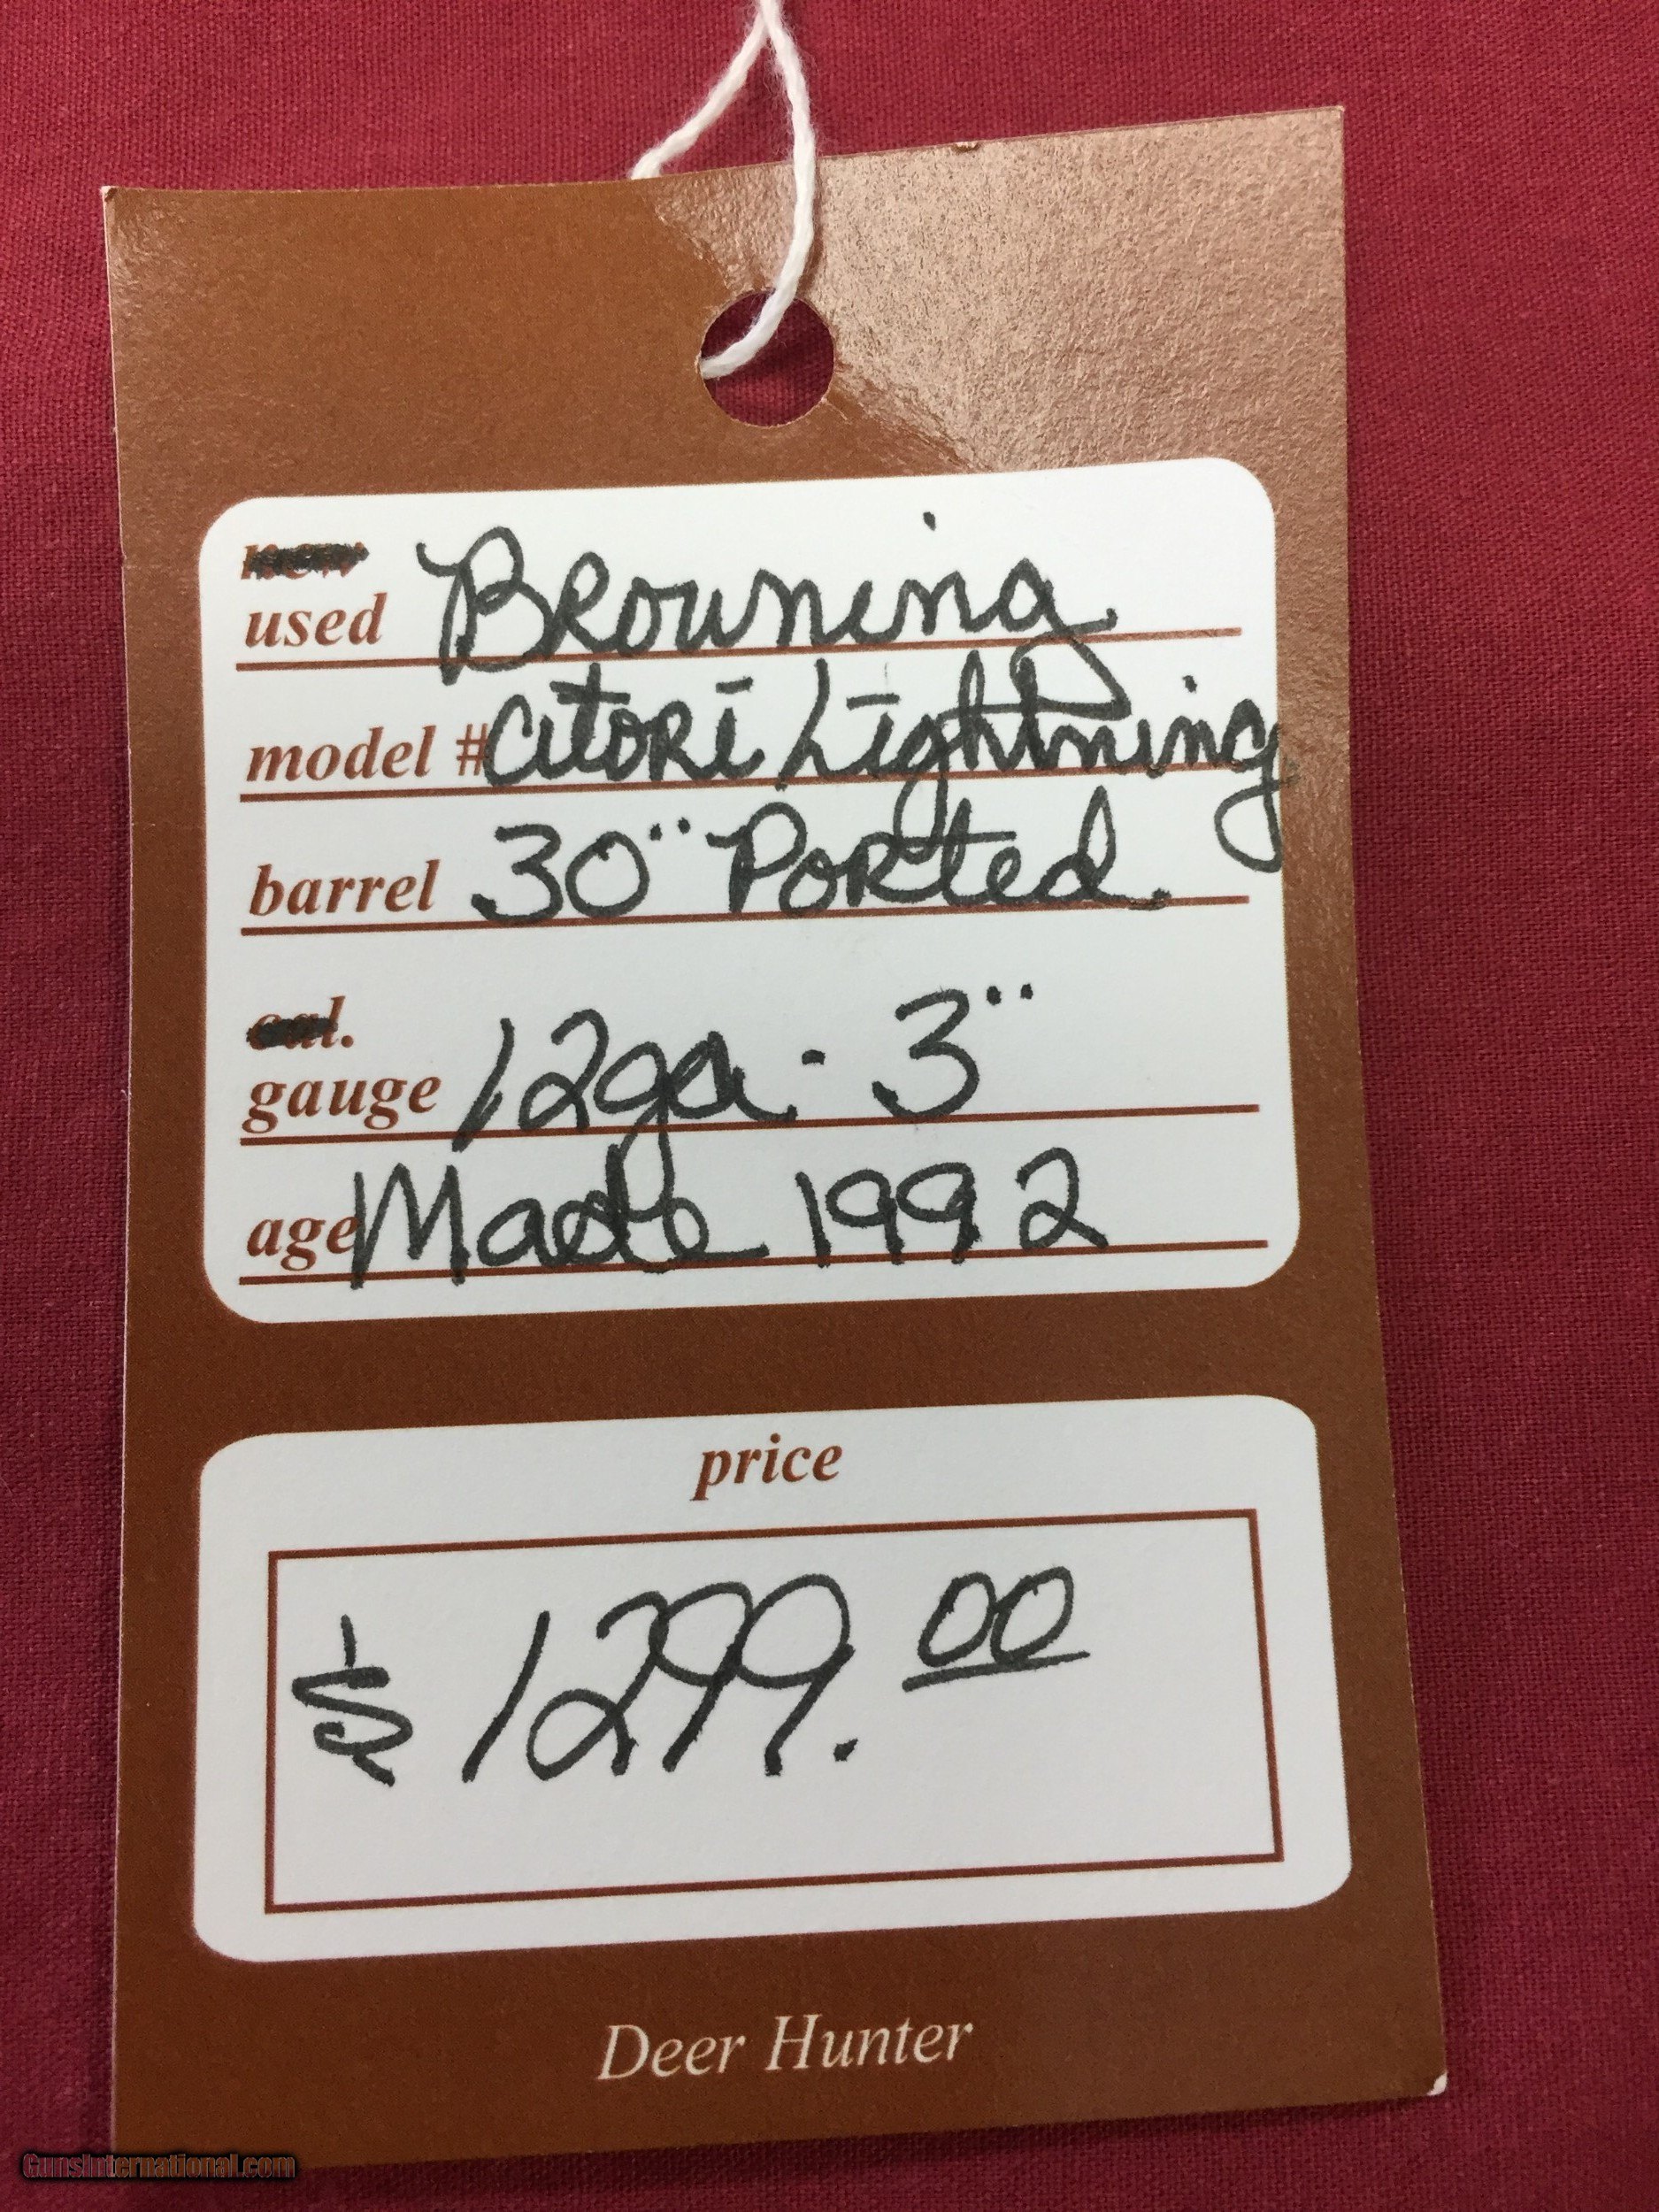 new
used Browning
model # Citori Lightning
barrel 30" Ported.
cal.
gauge 12ga. - 3"
age Made 1992
price
$ 1299.00
Deer Hunter
GunsInternational.com